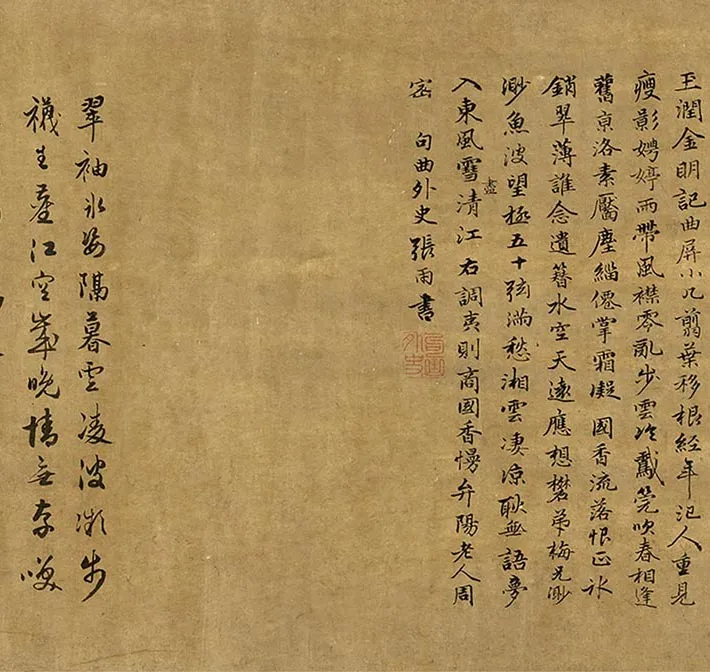 玉潤金明記曲屏小几翦葉移根經年汜人重見
瘦影娉婷雨帶風襟零亂步雲冷鵞筦吹春相逢
舊京洛素靨塵緇僊掌霜凝 國香流落恨正氷
銷翠薄誰念遺簪水空天遠應想礬弟梅兄渺
渺魚波望極五十弦滿愁湘雲凄涼耿無語夢
入東風雪盡清江右調夷則商國香慢弁陽老人周
密 句曲外史張雨書
翠袖氷姿隔暮雲凌波微步
襪生塵江空歲晚情無奈喚